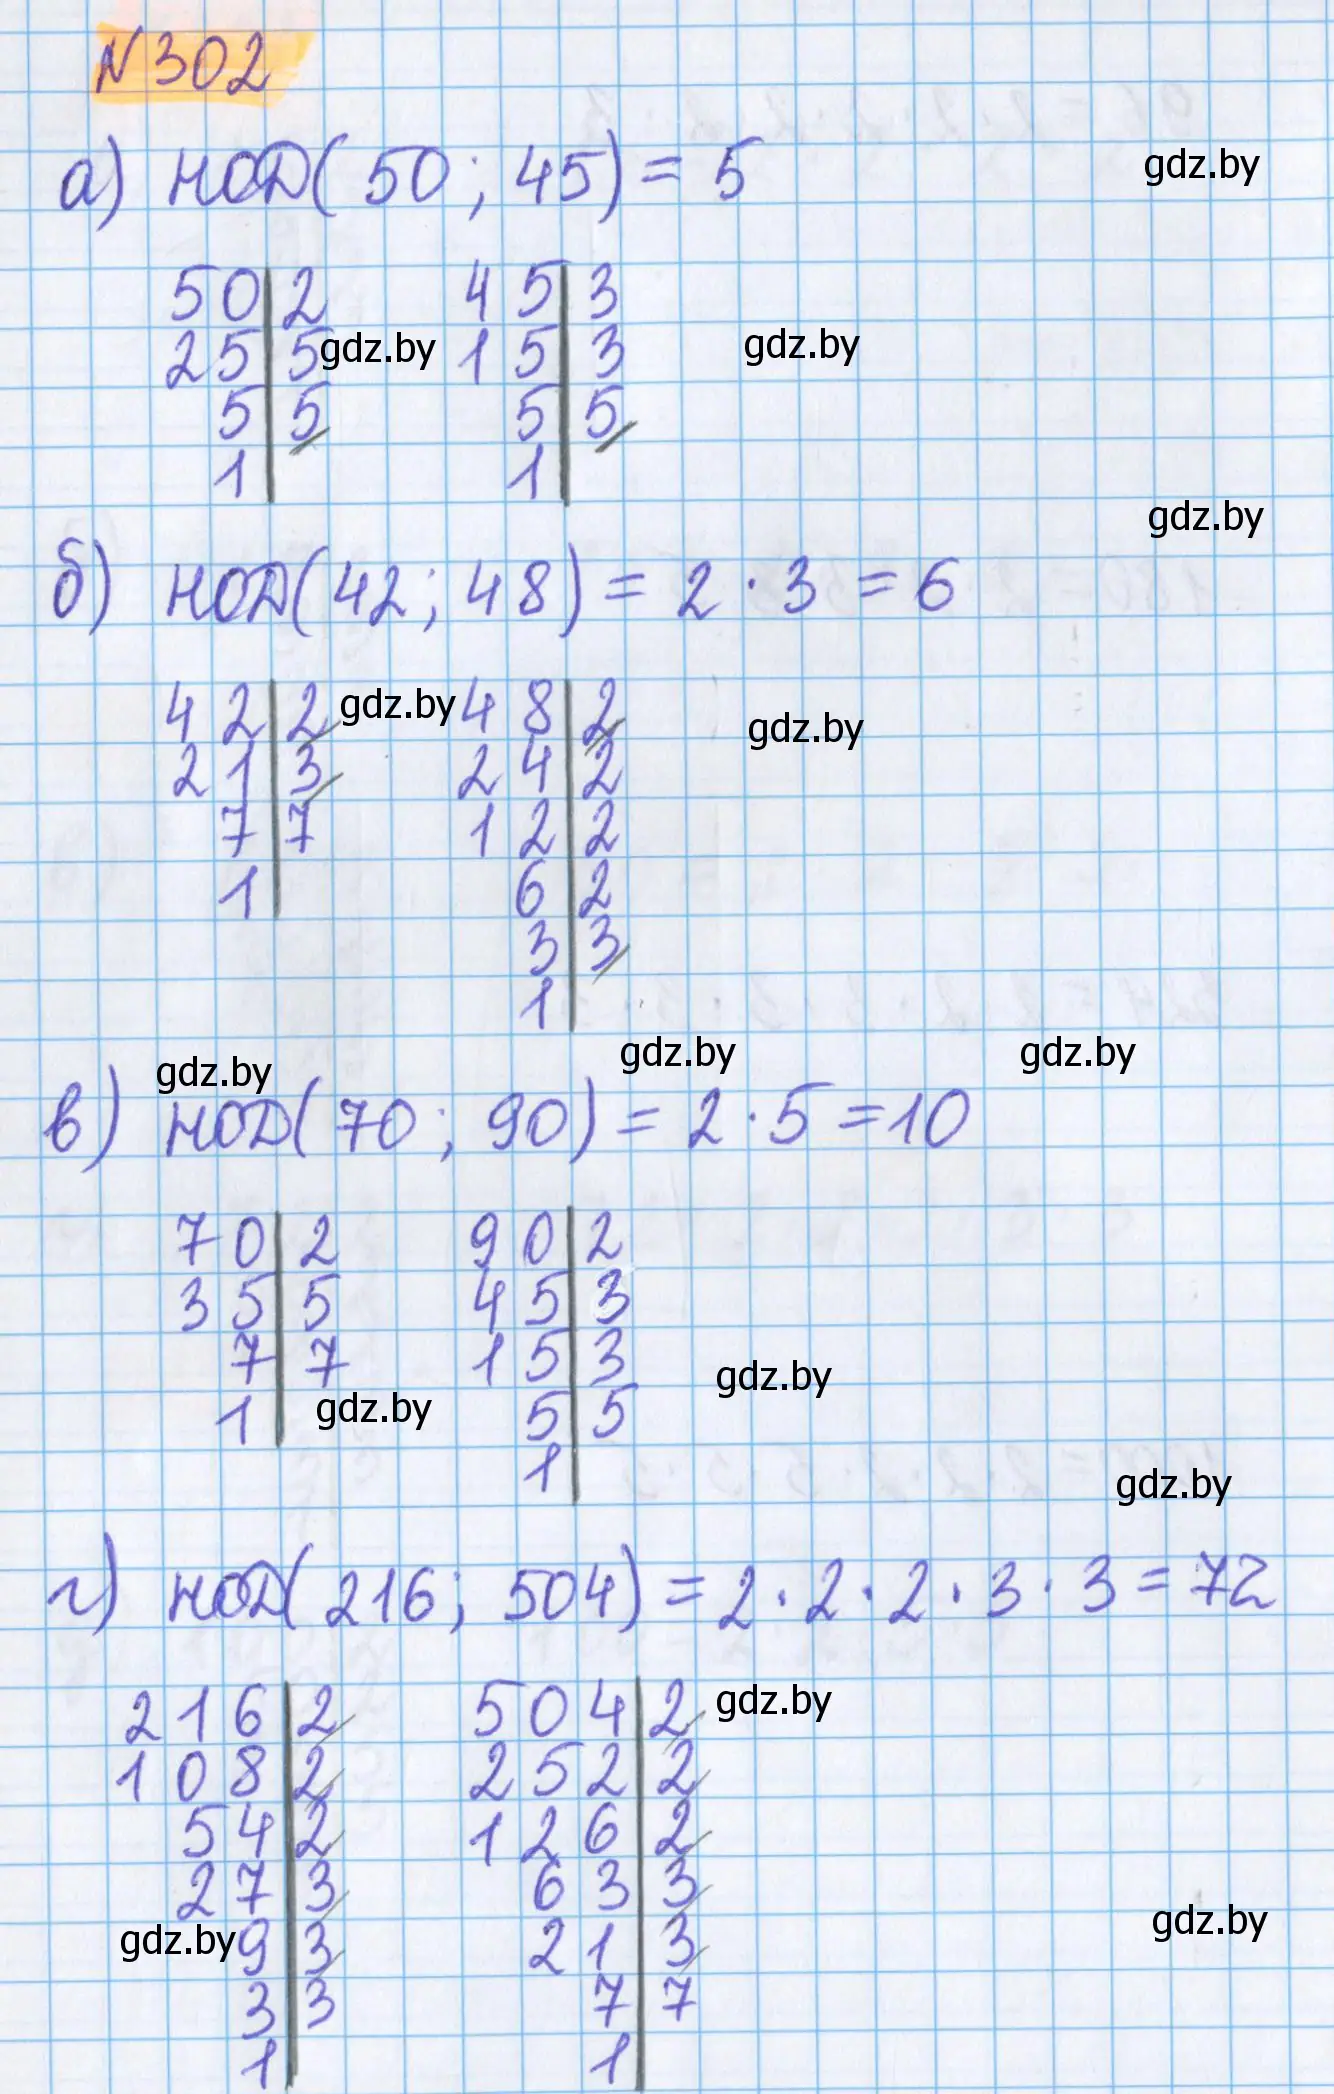 N 302
а) НОД(50; 45) = 5 gdz.by
50|2 45|3
25|5 gdz.by 15|3 gdz.by
5|5 5|5
1| 1|
gdz.by
б) НОД(42; 48) = 2 · 3 = 6
42|2 gdz.by 48|2 gdz.by
21|3 24|2
7|7 12|2
1| 6|2
3|3
1|
gdz.by gdz.by gdz.by
в) НОД(70; 90) = 2 · 5 = 10
70|2 90|2
35|5 45|3
7|7 15|3 gdz.by
1| gdz.by 5|5
1|
gdz.by
г) НОД(216; 504) = 2 · 2 · 2 · 3 · 3 = 72
216|2 504|2 gdz.by
108|2 252|2
54|2 126|2
27|3 63|3
gdz.by 9|3 21|3 gdz.by
3|3 7|7
1| 1|